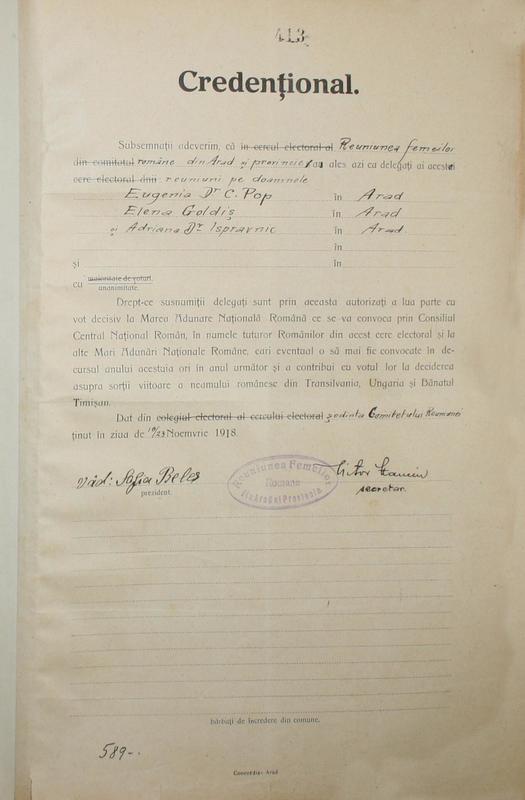 413
Credențional.
Subsemnații adeverim, că în cercul electoral al Reuniunea femeilor
din comitatul române din Arad și provincie s'au ales azi ca delegați ai acestei
cerc electoral dnii: reuniuni pe doamnele
Eugenia Dr C. Pop în Arad
Elena Goldiș în Arad
și Adriana Dr Ispravnic în Arad
în
și în
cu majoritate de voturi.
unanimitate.
Drept-ce susnumiții delegați sunt prin aceasta autorizați a lua parte cu
vot decisiv la Marea Adunare Națională Română ce se va convoca prin Consiliul
Central Național Român, în numele tuturor Românilor din acest cerc electoral și la
alte Mari Adunări Naționale Române, cari eventual o să mai fie convocate în de-
cursul anului acestuia ori în anul următor și a contribui cu votul lor la deciderea
asupra sorții viitoare a neamului românesc din Transilvania, Ungaria și Bănatul
Timișan.
Dat din colegiul electoral al cercului electoral ședința Comitetului Reuniunei
ținut în ziua de 10/23 Noemvrie 1918.
văd: Sofia Beleș
prezident.
Reuniunea Femeilor
Române
din Arad și Provincia
secretar.
bărbați de încredere din comune.
589-.
Concordia- Arad